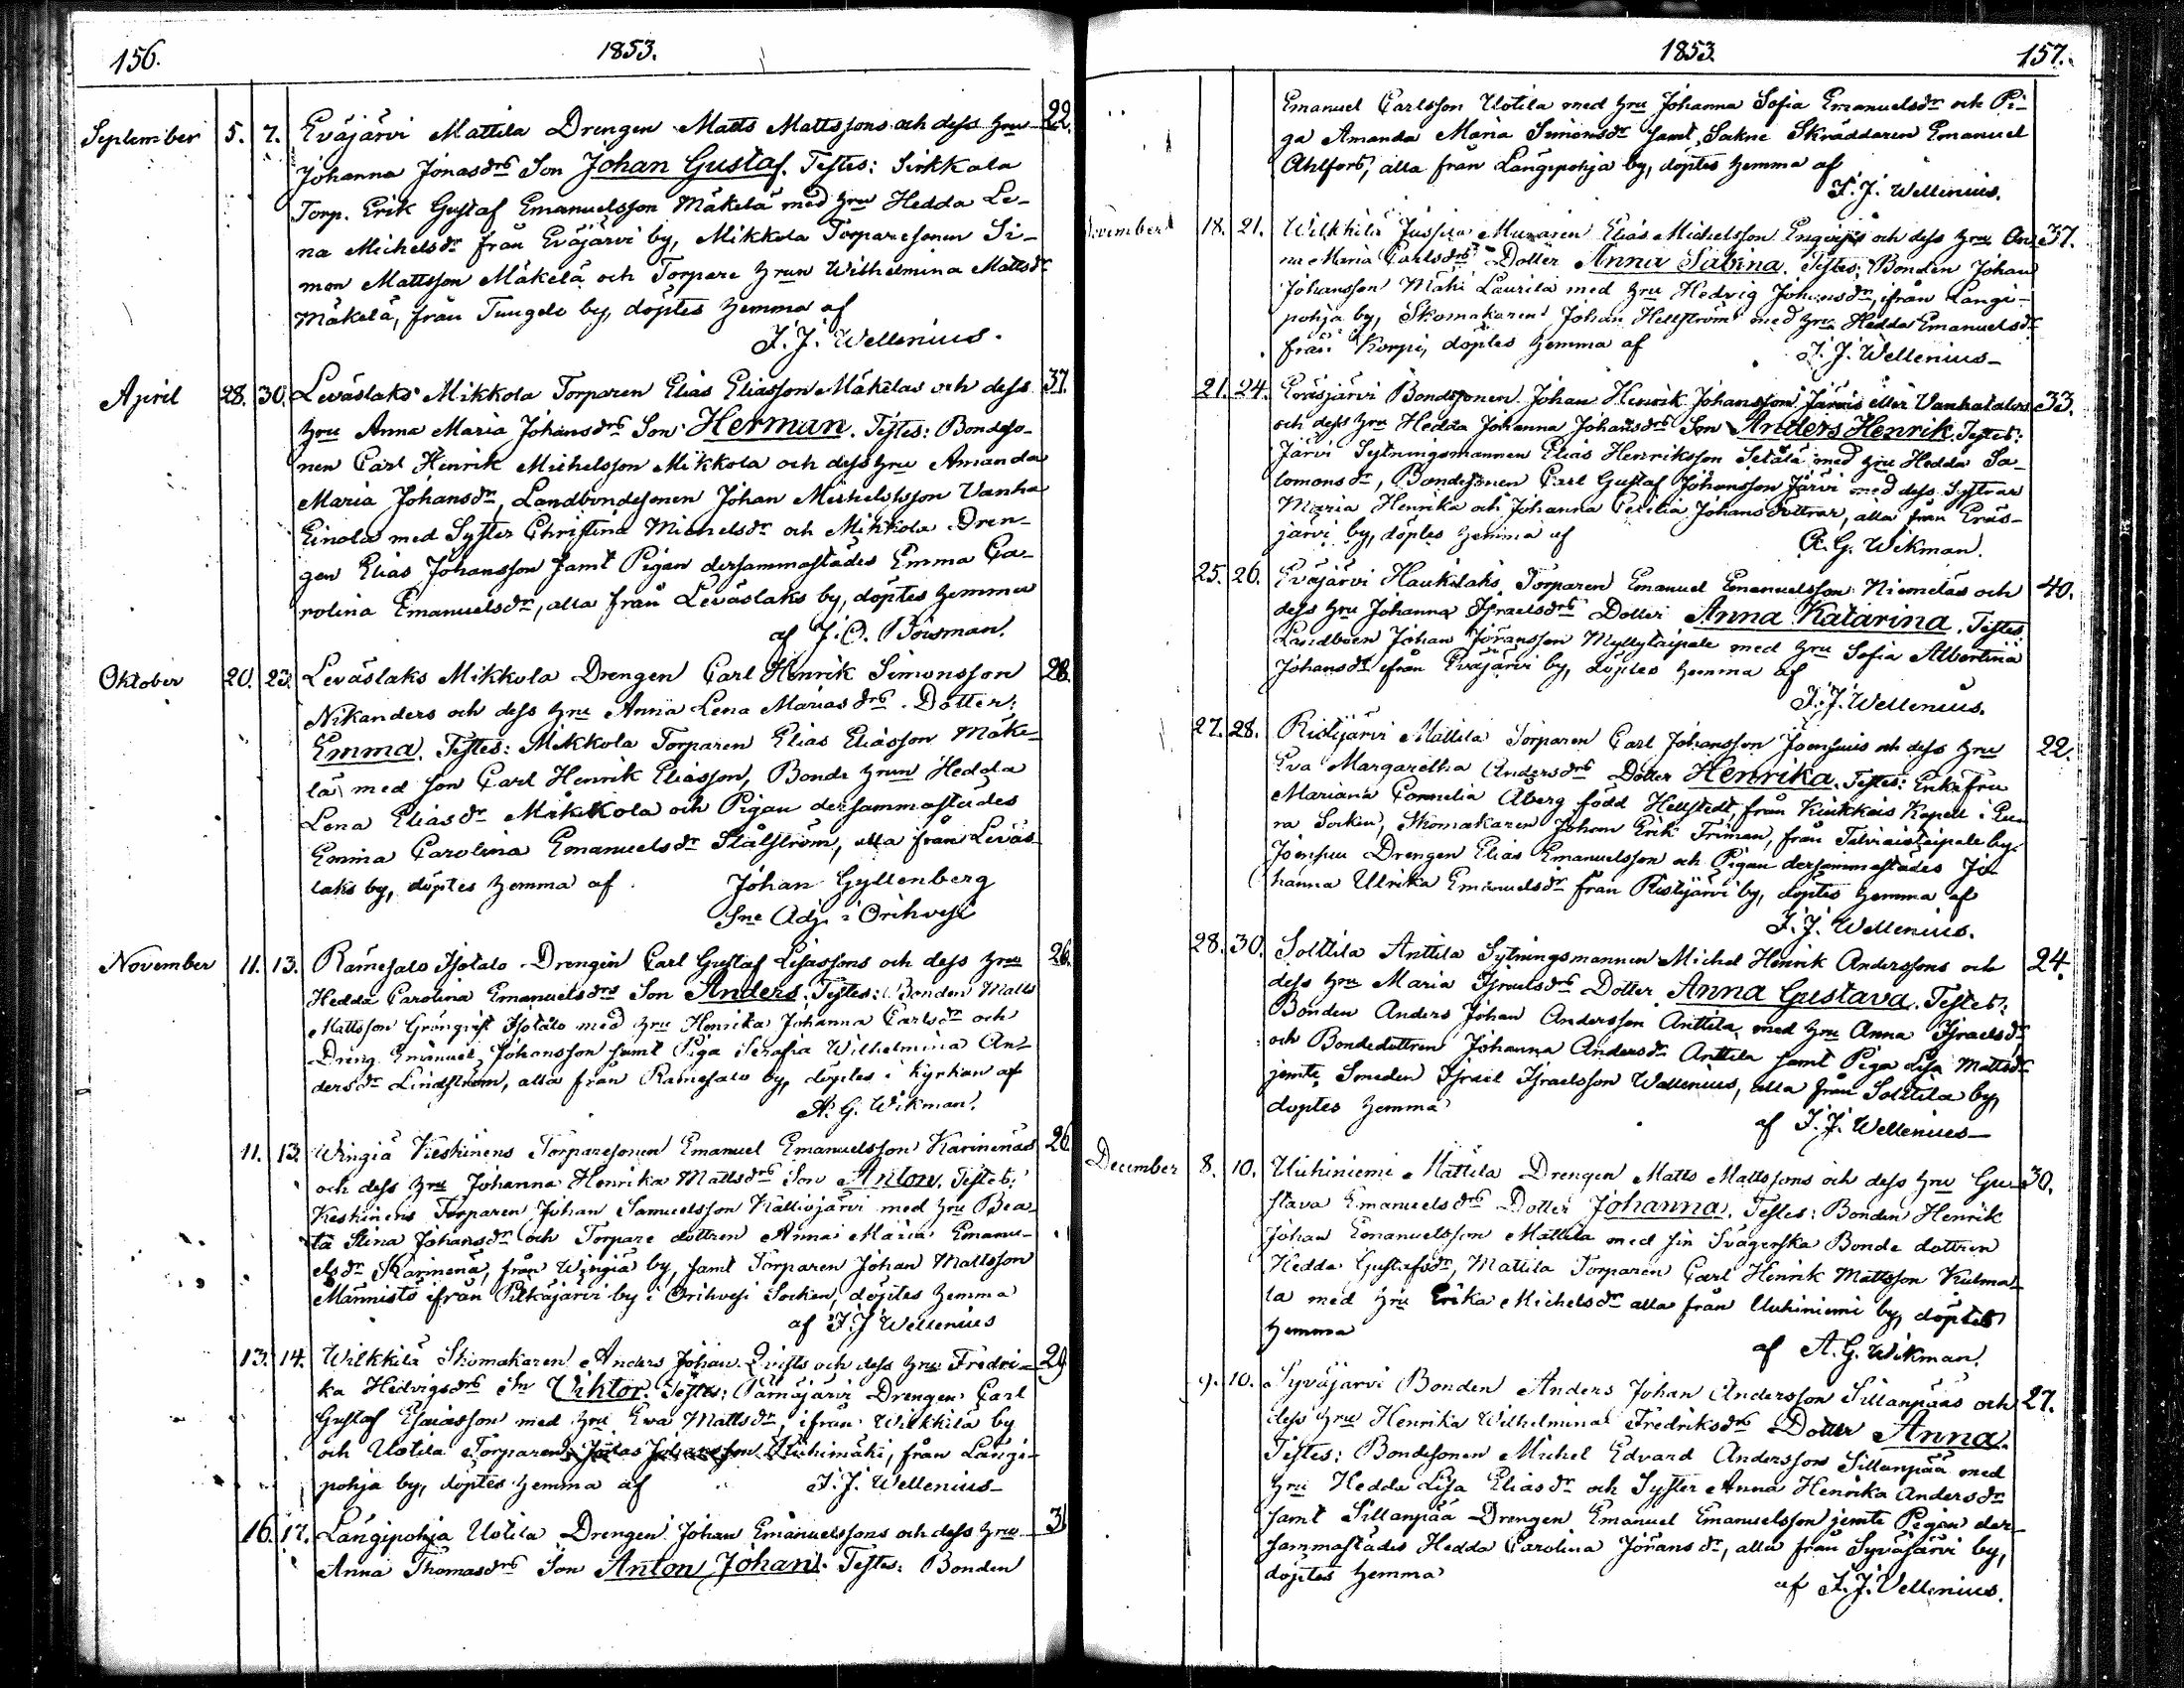 156.
1853.
September 5. 7. Eväjärvi Mattila Drengen Matts Mattssons och dess hru 22.
Johanna Jonasdrs Son Johan Gustaf. Testes: Sirkkala
Torp. Erik Gustaf Emanuelsson Mäkelä med hru Hedda Le-
na Michelsdr från Eväjärvi by, Mikkola Torparesonen Si-
mon Mattsson Mäkelä och Torpare hrun Wilhelmina Mattsdr
Mäkelä, från Tungelo by, döptes hemma af
I. J. Wellenius.
April 28. 30. Leväslaks Mikkola Torparen Elias Eliasson Mäkeläs och dess 37.
hru Anna Maria Johansdrs Son Herman. Testes: Bondeso-
nen Carl Henrik Michelsson Mikkola och dess hru Amanda
Maria Johansdr, Landbondesonen Johan Michelsson Vanha
Einola med Syster Christina Michelsdr och Mikkola Dren-
gen Elias Johansson samt Pigan dersammastädes Emma Ca-
rolina Emanuelsdr, alla från Leväslaks by, döptes hemma
af J. O. Boisman.
Oktober 20. 23. Leväslaks Mikkola Drengen Carl Henrik Simonsson 28.
Nikanders och dess hru Anna Lena Mariasdrs Dotter:
Emma. Testes: Mikkola Torparen Elias Eliasson Mäke-
lä med son Carl Henrik Eliasson, Bonde hrun Hedda
Lena Eliasdr Mikkola och Pigan dersammastädes
Emma Carolina Emanuelsdr Stålström, alla från Leväs-
laks by, döptes hemma af Johan Gyllenberg
Sne Adj. i Orihvesi
November 11. 13. Rämesalo Isotalo Drengen Carl Gustaf Esaiassons och dess hru 26.
Hedda Carolina Emanuelsdrs Son Anders. Testes: Bonden Matts
Mattsson Grönqvist Isotalo med hru Henrika Johanna Carlsdr och
Dreng Emanuel Johansson samt Piga Serafia Wilhelmina An-
dersdr Lindström, alla från Rämesalo by, döptes i kyrkan af
A. G. Wikman.
11. 13. Wingiä Keskinens Torparesonen Emanuel Emanuelsson Karinenäs 26
och dess hru Johanna Henrika Mattsdrs Son Anton. Testes:
Keskinens Torparen Johan Samuelsson Kalliojärvi med hru Bea-
ta Stina Johansdr och Torpare dottren Anna Maria Emanu-
elsdr Karinenä, från Wingiä by, samt Torparen Johan Mattsson
Männistö ifrån Pitkäjärvi by i Orihvesi Socken, döptes hemma
af I. J. Wellenius
13. 14. Wilkkilä Skomakaren Anders Johan Qvists och dess hru Fredri- 29
ka Hedvigsdrs Sn Viktor. Testes: Pämäjärvi Drengen Carl
Gustaf Esaiasson med hru Eva Mattsdr, ifrån Wilkkilä by
och Uotila Torparen Jonas Johansson Riihimäki, från Längi-
pohja by, döptes hemma af I. J. Wellenius
16. 17. Längipohja Uotila Drengen Johan Emanuelssons och dess hru 31
Anna Thomasdrs Son Anton Johan. Testes: Bonden
1853.
157.
Emanuel Carlsson Uotila med hru Johanna Sofia Emanuelsdr och Pi-
ga Amanda Maria Simonsdr samt Sakne Skräddaren Emanuel
Ahlfors, alla från Längipohja by, döptes hemma af
I. J. Wellenius.
November 18. 21. Wilkkilä Jussila Muraren Elias Michelsson Engvists och dess hru An- 37.
na Maria Carlsdrs Dotter Anna Sabina. Testes: Bonden Johan
Johansson Mäki Laurila med hru Hedvig Johansdr, ifrån Längi-
pohja by, Skomakaren Johan Hellström med hru Hedda Emanuelsdr
från Korpi, döptes hemma af I. J. Wellenius
21. 24. Eräsjärvi Bondesonen Johan Henrik Johansson Järvis eller Vanhatalos 33.
och dess hru Hedda Johanna Johansdrs Son Anders Henrik. Testes:
Järvi Sytningsmannen Elias Henriksson Setälä med hru Hedda Sa-
lomonsdr, Bondesonen Carl Gustaf Johansson Järvi med dess Systrar
Maria Henrika och Johanna Cecilia Johansdöttrar, alla från Eräs-
järvi by, döptes hemma af A. G. Wikman.
25. 26. Eväjärvi Haukilaks Torparen Emanuel Emanuelsson Niemeläs och 40.
dess hru Johanna Israelsdrs Dotter Anna Katarina. Testes:
Landboen Johan Göransson Myllytaipale med hru Sofia Albertina
Johansdr ifrån Eväjärvi by, döptes hemma af
I. J. Wellenius.
27. 28. Ristijärvi Mattila Torparen Carl Johansson Joensuus och dess hru 22.
Eva Margaretha Andersdrs Dotter Henrika. Testes: Enkefru
Mariana Cornelia Åberg född Hellstedt, från Kiukkais Kapell i Eu-
ra Socken, Skomakaren Johan Erik Friman, från Talviaistaipale by.
Joensuu Drengen Elias Emanuelsson och Pigan dersammastädes Jo-
hanna Ulrika Emanuelsdr från Ristijärvi by, döptes hemma af
I. J. Wellenius.
28. 30. Solttila Anttila Sytningsmannen Michel Henrik Anderssons och 24.
dess hru Maria Israelsdrs Dotter Anna Gustava. Testes:
Bonden Anders Johan Andersson Anttila med hru Anna Israelsdr
och Bondedottren Johanna Andersdr Anttila samt Piga Lisa Mattsdr
jemte Smeden Israel Israelsson Wallenius, alla från Solttila by,
döptes hemma
af I. J. Wellenius
December 8. 10. Uuhiniemi Mattila Drengen Matts Mattssons och dess hru Gu- 30.
stava Emanuelsdrs Dotter Johanna. Testes: Bonden Henrik
Johan Emanuelsson Mattila med sin Svägerska Bonde dottren
Hedda Gustafsdr, Mattila Torparen Carl Henrik Mattsson Kulma-
la med hru Erika Michelsdr alla från Uuhiniemi by, döptes
hemma
af A. G. Wikman.
9. 10. Syväjärvi Bonden Anders Johan Andersson Sillanpääs och 27.
dess hru Henrika Wilhelmina Fredriksdrs Dotter Anna.
Testes: Bondesonen Michel Edvard Andersson Sillanpää med
hru Hedda Lisa Eliasdr och Syster Anna Henrika Andersdr
samt Sillanpää Drengen Emanuel Emanuelsson jemte Pigan der-
sammastädes Hedda Carolina Göransdr, alla från Syväjärvi by,
döptes hemma
af I. J. Wellenius.